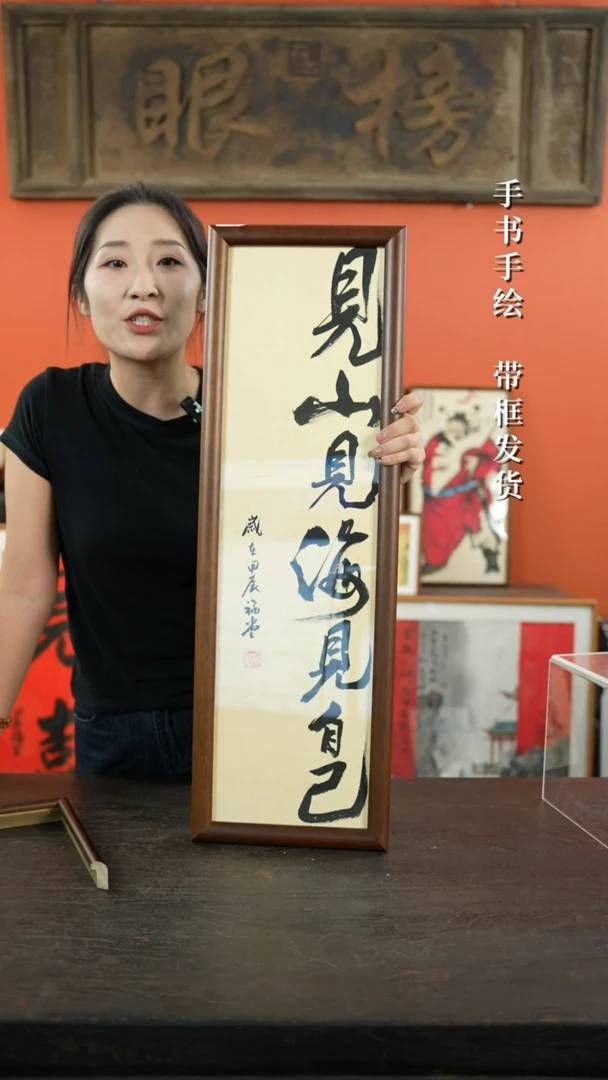 榜眼
手书手绘 带框发货
見山見海見自己
歲在甲辰 福堂